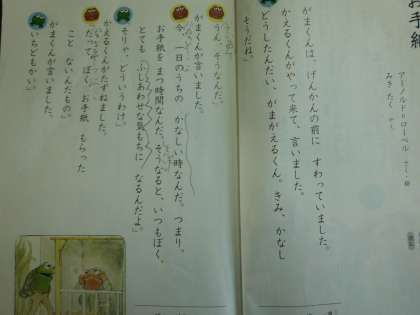 お手紙
アーノルド=ローベル さく・絵
みき たく やく
がまくんは、げんかんの前に すわっていました。
かえるくんがやって来て、言いました。
「どうしたんだい、がまがえるくん。きみ、かなし
そうだね。」
「うん、そうなんだ。」
がまくんが言いました。
「今、一日のうちの かなしい時なんだ。つまり、
お手紙をまつ時間なんだ。そうなると、いつもぼく、
とても ふしあわせな気もちに なるんだよ。」
「そりゃ、どういうわけ。」
かえるくんがたずねました。
「だって、ぼく、お手紙 もらった
こと ないんだもの。」
がまくんが言いました。
「いちどもかい。」